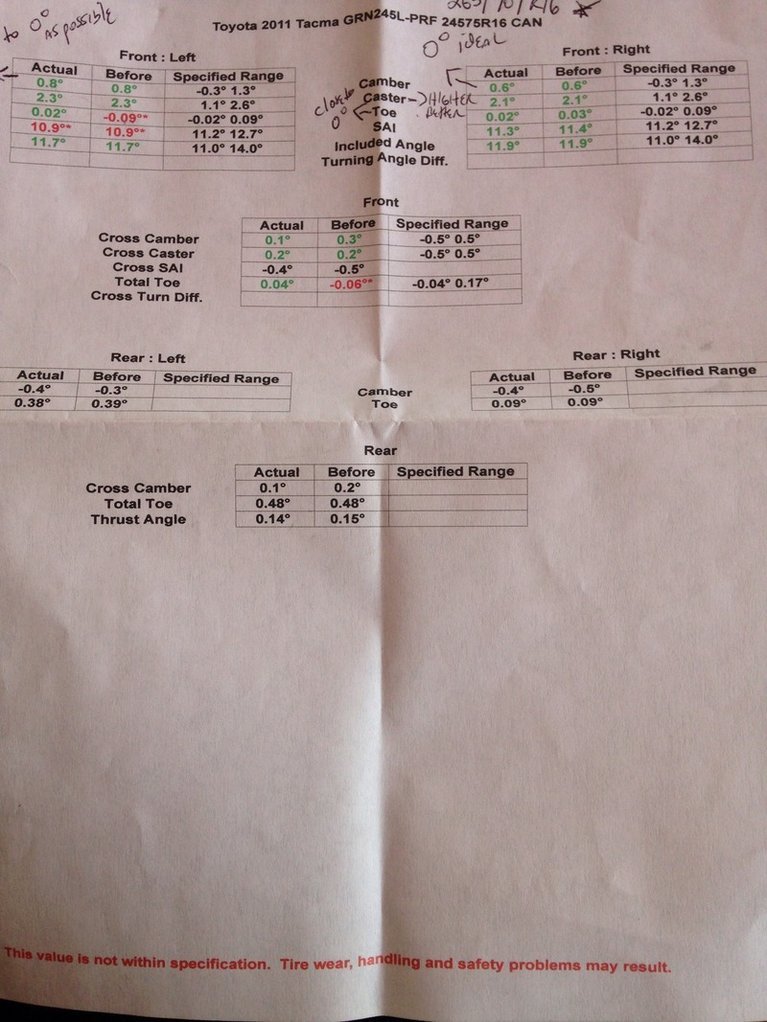 265/70/R16
to 0° as possible
Toyota 2011 Tacma GRN245L-PRF 24575R16 CAN
0° ideal
Front : Left
Front : Right
Actual Before Specified Range
0.8° 0.8° -0.3° 1.3°
2.3° 2.3° 1.1° 2.6°
0.02° -0.09°* -0.02° 0.09°
10.9°* 10.9°* 11.2° 12.7°
11.7° 11.7° 11.0° 14.0°
close to 0°
Camber
Caster
Toe
SAI
Included Angle
Turning Angle Diff.
HIGHER
Better
Actual Before Specified Range
0.6° 0.6° -0.3° 1.3°
2.1° 2.1° 1.1° 2.6°
0.02° 0.03° -0.02° 0.09°
11.3° 11.4° 11.2° 12.7°
11.9° 11.9° 11.0° 14.0°
Front
Actual Before Specified Range
Cross Camber 0.1° 0.3° -0.5° 0.5°
Cross Caster 0.2° 0.2° -0.5° 0.5°
Cross SAI -0.4° -0.5°
Total Toe 0.04° -0.06°* -0.04° 0.17°
Cross Turn Diff.
Rear : Left
Rear : Right
Actual Before Specified Range
-0.4° -0.3°
0.38° 0.39°
Camber
Toe
Actual Before Specified Range
-0.4° -0.5°
0.09° 0.09°
Rear
Actual Before Specified Range
Cross Camber 0.1° 0.2°
Total Toe 0.48° 0.48°
Thrust Angle 0.14° 0.15°
This value is not within specification. Tire wear, handling and safety problems may result.